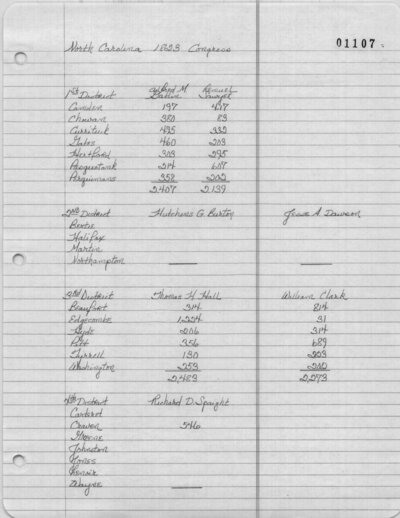 North Carolina 1823 Congress 01107
1st District Alfred M Gatlin Lemuel Sawyer
Camden 197 497
Chowan 380 83
Currituck 495 332
Gates 460 203
Hertford 303 295
Pasquotank 214
Perquimans 358 202
2,407 2,139
2nd District Hutchins G. Burton Jesse A Dawson
Bertie
Halifax
Martin
Northampton
3rd District Thomas H Hall William Clark
Beaufort 314 814
Edgecombe 1,224 31
Hyde 206 314
Pitt 356 689
Tyrrell 130 223
Washington 253 202
2,483 2,273
4th District Richard D. Spaight
Carteret
Craven 546
Greene
Johnston
Jones
Lenoir
Wayne